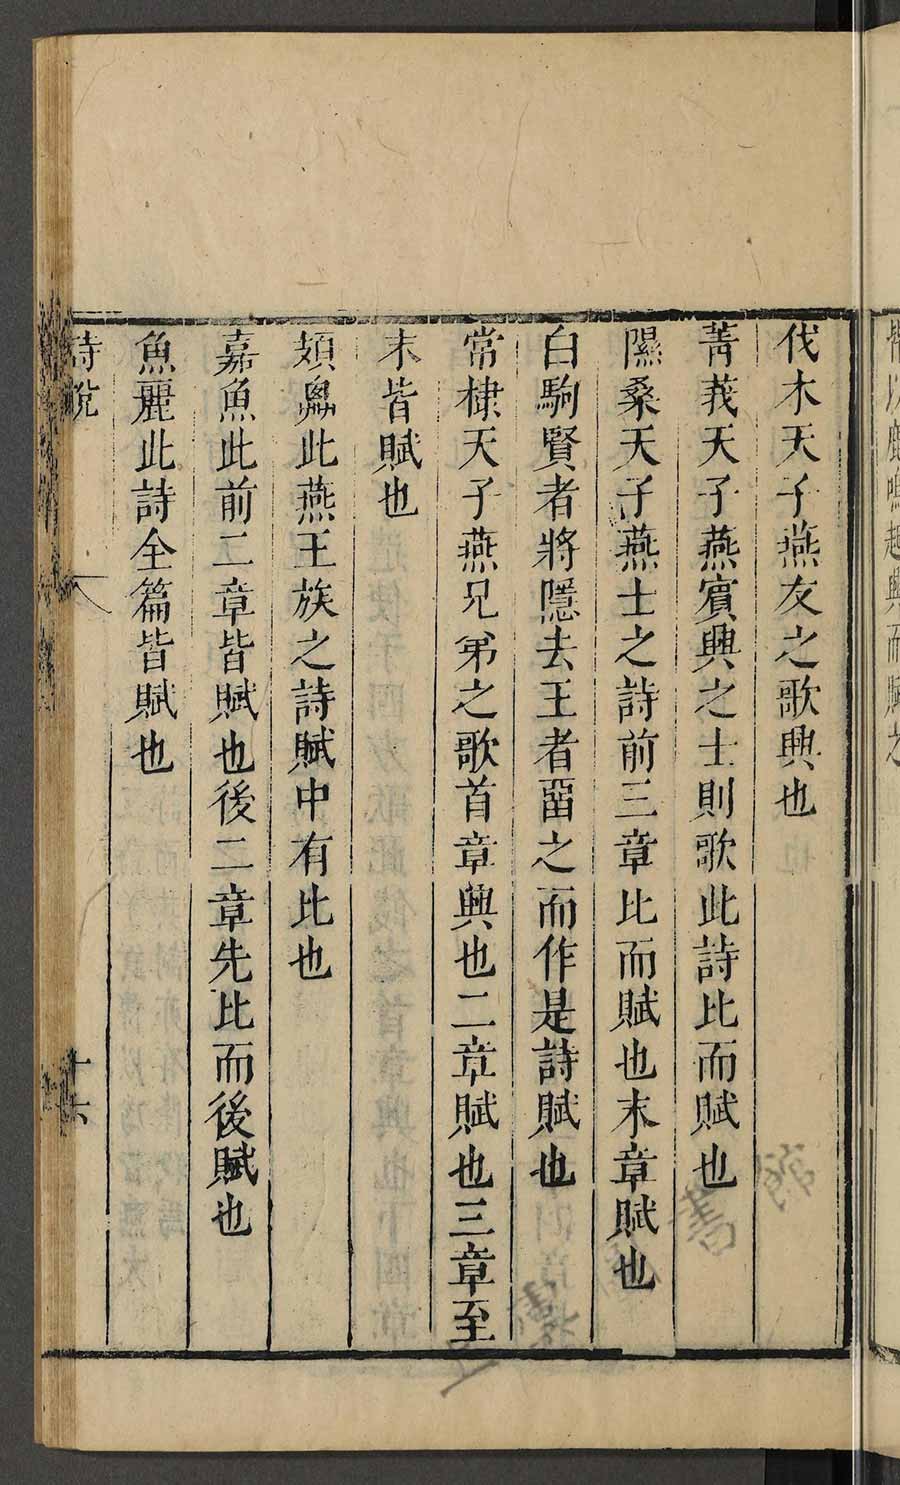 伐木天子燕友之歌興也
菁莪天子燕賓興之士則歌此詩比而賦也
隰桑天子燕士之詩前三章比而賦也末章賦也
白駒賢者將隱去王者畱之而作是詩賦也
常棣天子燕兄弟之歌首章興也二章賦也三章至
末皆賦也
頍鳧此燕王族之詩賦中有比也
嘉魚此前二章皆賦也後二章先比而後賦也
魚麗此詩全篇皆賦也
詩說
十六